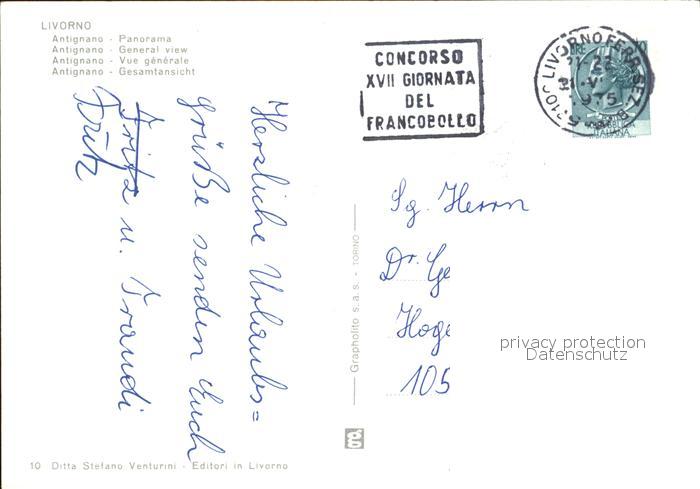 LIVORNO
Antignano - Panorama
Antignano - General view
Antignano - Vue générale
Antignano - Gesamtansicht
CONCORSO
XVII GIORNATA
DEL
FRANCOBOLLO
LIVORNO FERR. SEZ.
21-22
ITALIANA
Herzliche Urlaubs=
grüße senden Euch
Fritz u. Traudi
Sg. Herrn
Dr. Ge
Hoge
105
privacy protection
Datenschutz
Grapholito s.a.s. - TORINO
10 Ditta Stefano Venturini - Editori in Livorno